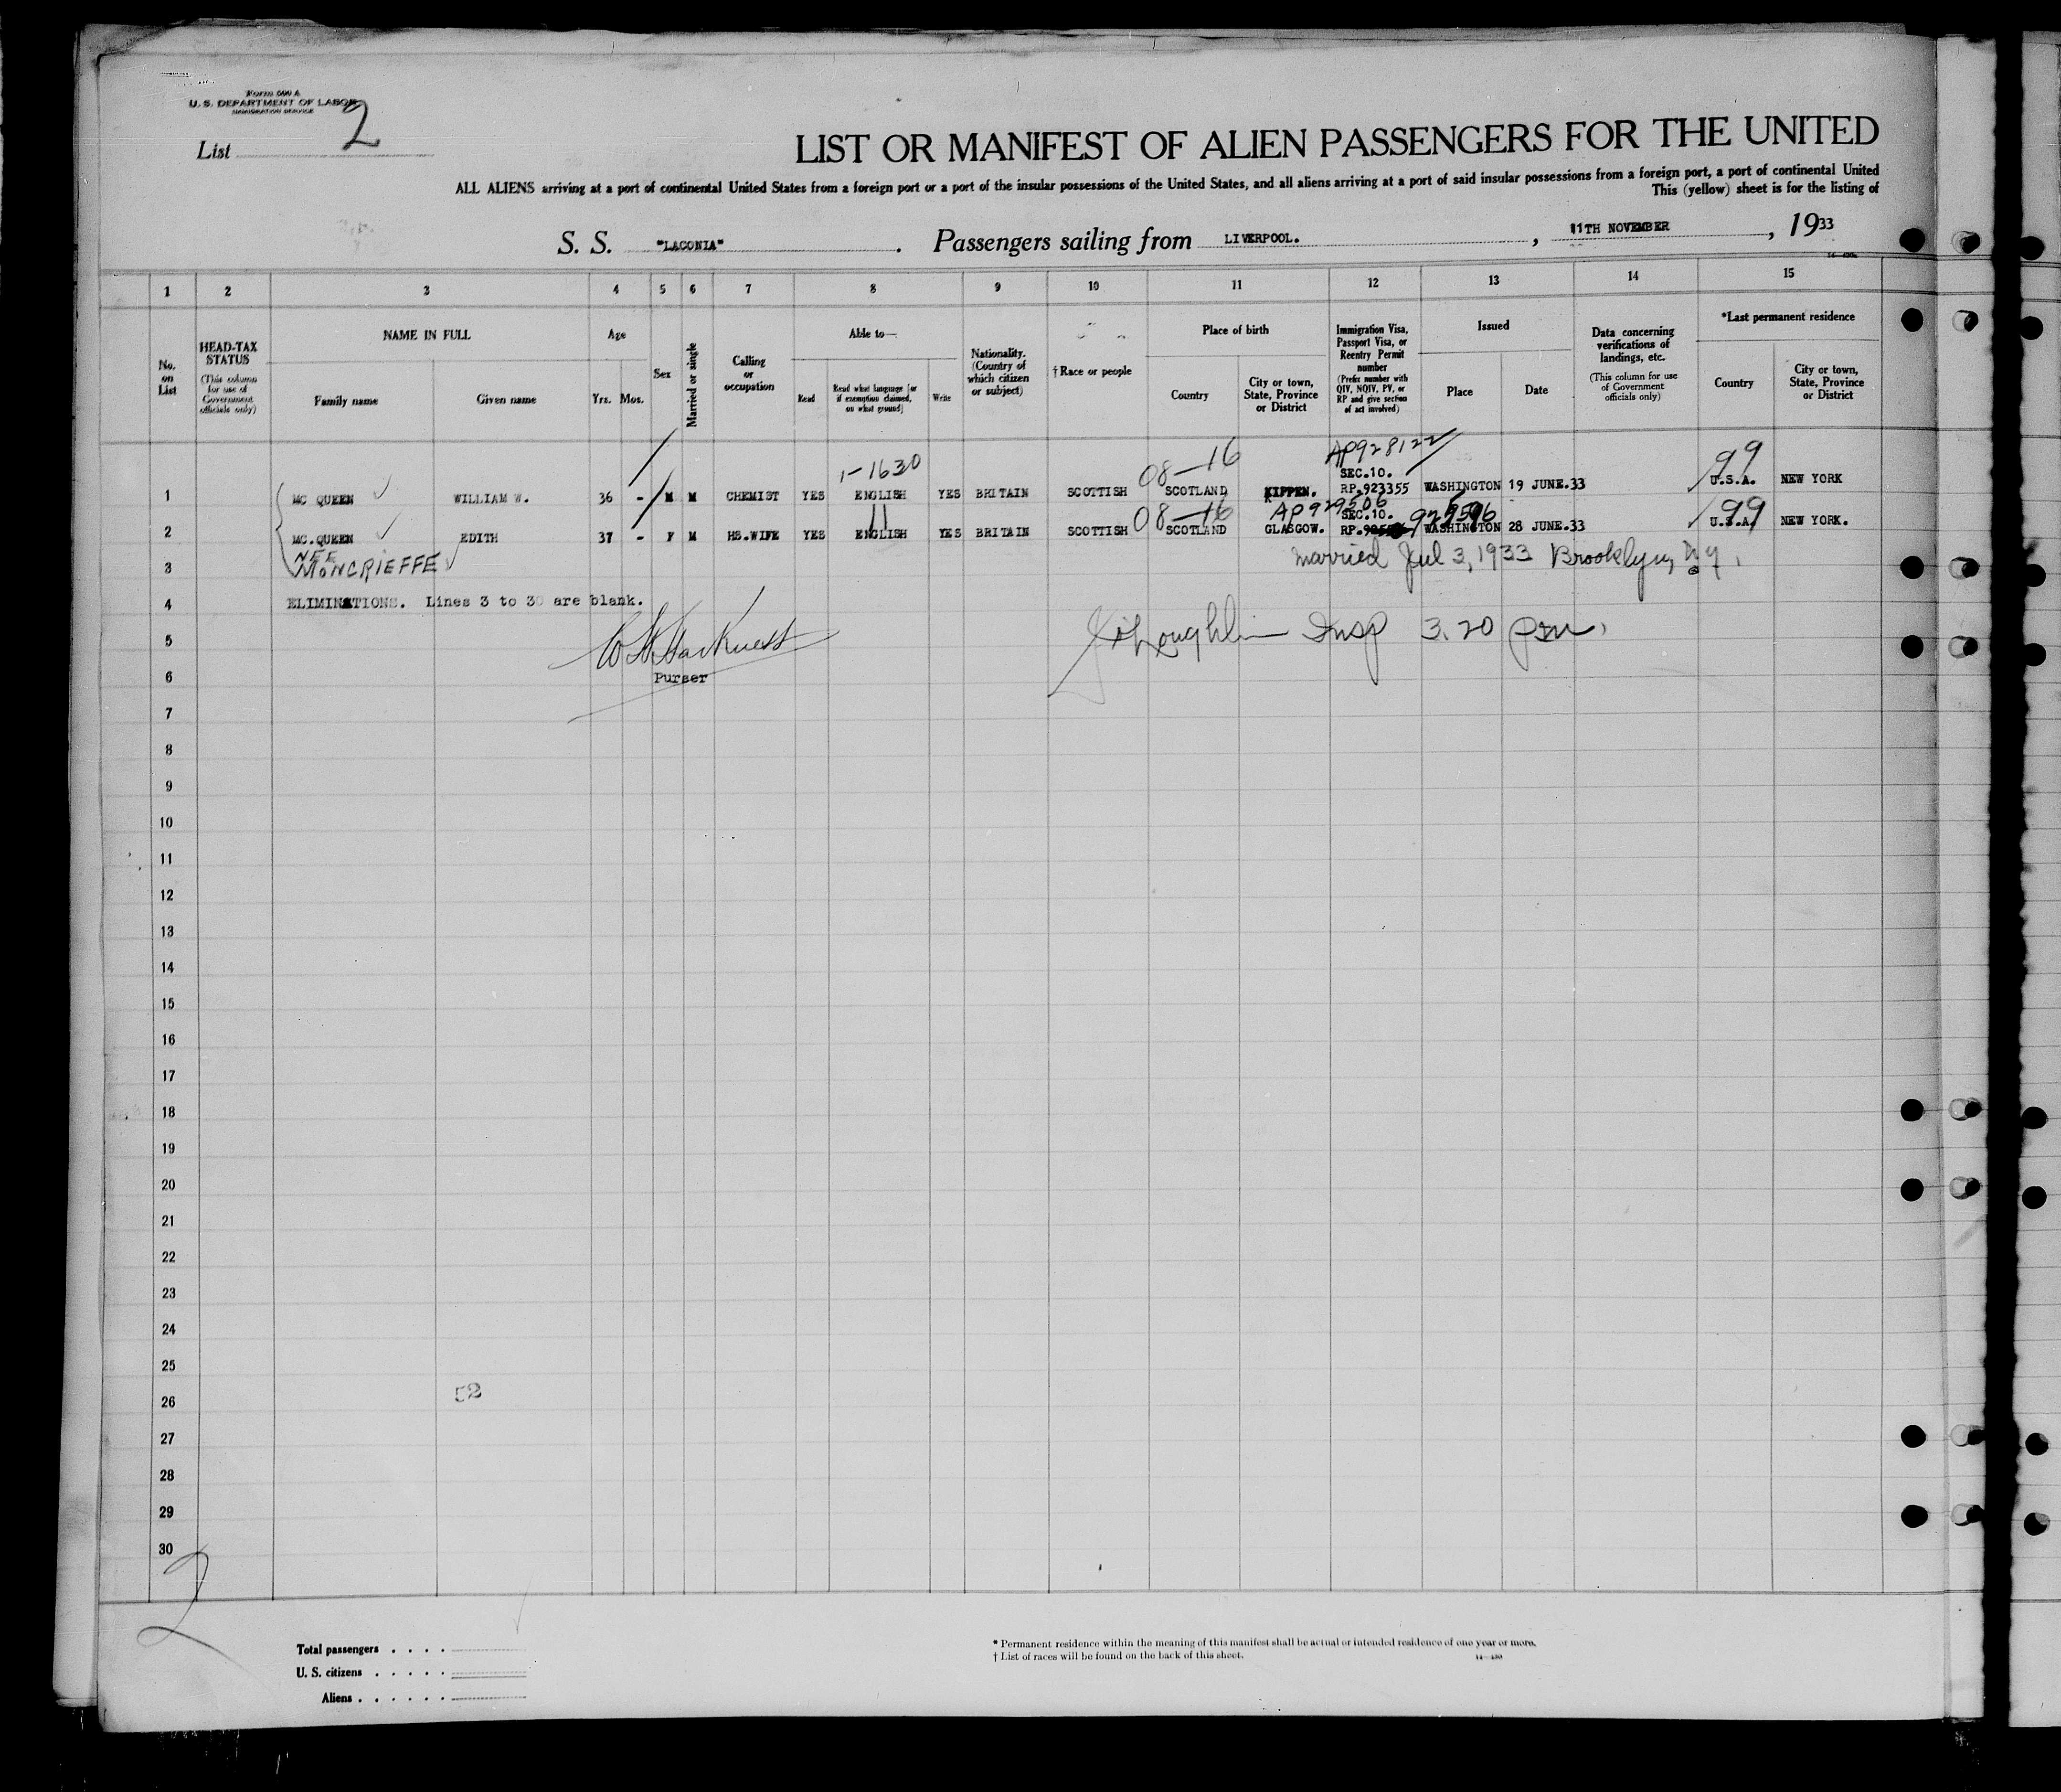 Form 500 A
U. S. DEPARTMENT OF LABOR
IMMIGRATION SERVICE
List 2
LIST OR MANIFEST OF ALIEN PASSENGERS FOR THE UNITED
ALL ALIENS arriving at a port of continental United States from a foreign port or a port of the insular possessions of the United States, and all aliens arriving at a port of said insular possessions from a foreign port, a port of continental United
This (yellow) sheet is for the listing of
S. S. "LACONIA". Passengers sailing from LIVERPOOL. , 11TH NOVEMBER , 1933
1 2 3 4 5 6 7 8 9 10 11 12 13 14 15
No. on List
HEAD-TAX STATUS (This column for use of Government officials only)
NAME IN FULL
Family name Given name
Age
Yrs. Mos.
Sex
Married or single
Calling or occupation
Able to—
Read Read what language [or if exemption claimed, on what ground] Write
Nationality. (Country of which citizen or subject)
† Race or people
Place of birth
Country City or town, State, Province or District
Immigration Visa, Passport Visa, or Reentry Permit number (Prefix number with QIV, NQIV, PV, or RP and give section of act involved)
Issued
Place Date
Data concerning verifications of landings, etc. (This column for use of Government officials only)
*Last permanent residence
Country City or town, State, Province or District
1-1630 08-16 AP928122 99
SEC.10.
1 MC QUEEN WILLIAM W. 36 - M M CHEMIST YES ENGLISH YES BRITAIN SCOTTISH SCOTLAND KIPPEN. RP.923355 WASHINGTON 19 JUNE.33 U.S.A. NEW YORK
11 08-16 AP929506 SEC.10. 99
2 MC.QUEEN EDITH 37 - F M HS.WIFE YES ENGLISH YES BRITAIN SCOTTISH SCOTLAND GLASGOW. RP. WASHINGTON 28 JUNE.33 U.S.A. NEW YORK.
NEE
3 MONCRIEFFE married Jul 3, 1933 Brooklyn, N.Y.
4 ELIMINATIONS. Lines 3 to 30 are blank.
5 W H Harkness Insp 3.20 pm.
6 Purser
7
8
9
10
11
12
13
14
15
16
17
18
19
20
21
22
23
24
25
26 52
27
28
29
30
2
Total passengers . . . .
U. S. citizens . . . . .
Aliens . . . . . .
* Permanent residence within the meaning of this manifest shall be actual or intended residence of one year or more.
† List of races will be found on the back of this sheet.